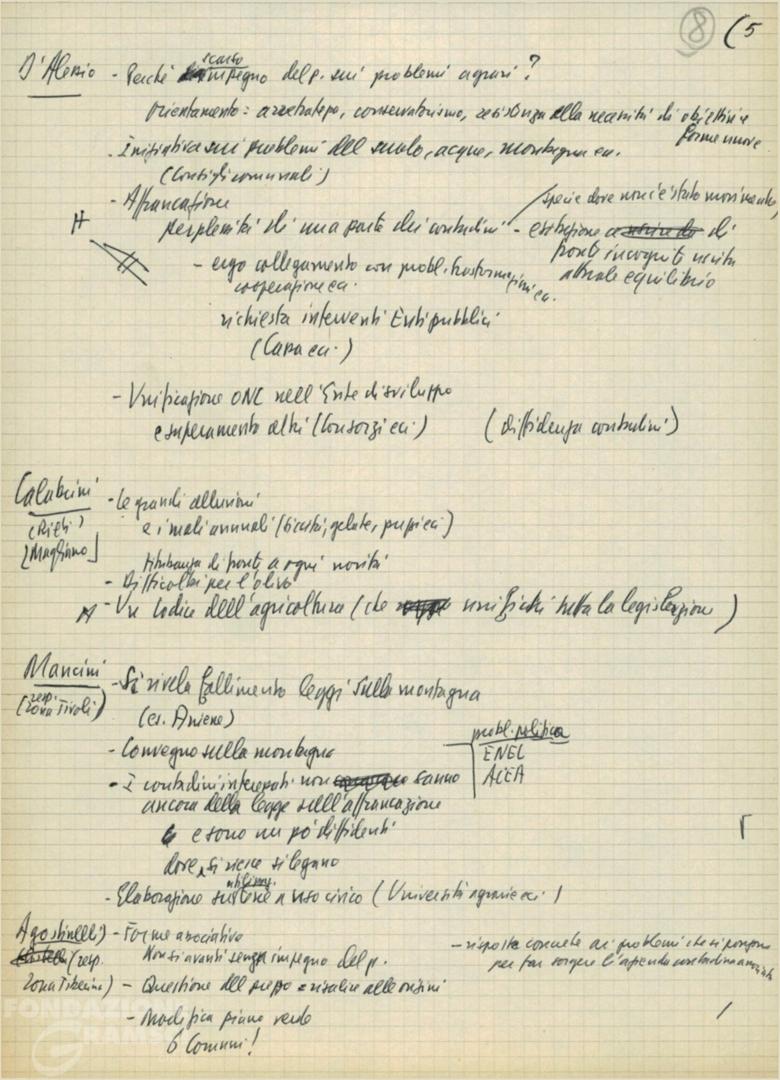 8 (5
D'Alessio - Perché scarso impegno del p. sui problemi agrari?
Orientamento: arretratezza, conservatorismo, resistenza alla necessità di obiettivi e
forme nuove
- Iniziativa sui problemi del suolo, acque, montagna ecc.
(Consigli comunali)
- Affrancazione
perplessità di una parte dei contadini - esitazione di
specie dove non c'è stato movimento,
fronte incogniti
attuale equilibrio
- ergo collegamento con probl. trasformazioni ecc.
cooperazione ecc.
richiesta interventi Enti pubblici
(Cassa ecc.)
- Unificazione ONC nell'Ente di sviluppo
e superamento altri (Consorzi ecc.) (diffidenza contadini)
Calabrini - Le grandi alluvioni
(Rieti) e i mali annuali (siccità, gelate, ecc.)
[Magliano]
titubanza di fronte a ogni novità
- Difficoltà per l'olivo
- Un Codice dell'agricoltura (che unifichi tutta la legislazione)
Mancini - Si rivela fallimento leggi sulla montagna
(resp. zona Tivoli)
(es. Aniene)
- Convegno sulla montagna
probl. politica
ENEL
ACEA
- I contadini interessati non sanno
ancora della legge sull'affrancazione
e sono un po' diffidenti
dove si riesce si legano
- Elaborazione su terre a uso civico (Università agrarie ecc.)
Agostinelli) - Forme associative
(resp. Non si avanti senza impegno del p.
zona Tiberina) - Questione del prezzo e risalire alle origini
- risposte concrete ai problemi che si pongono
per far sorgere l'azienda contadina associata
- Modifica piano verde
6 Comuni!
FONDAZIONE
GRAMSCI